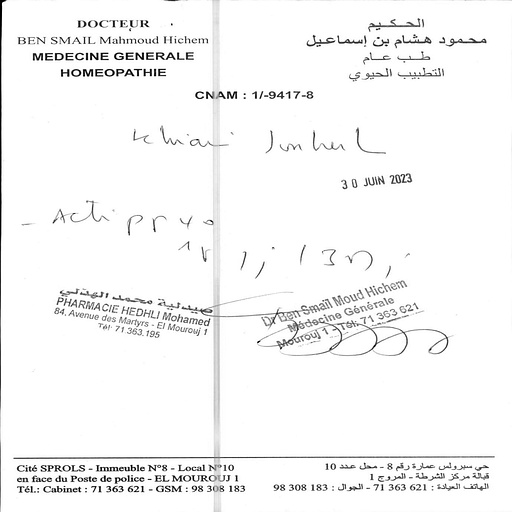 DOCTEUR
BEN SMAIL Mahmoud Hichem
MEDECINE GENERALE
HOMEOPATHIE
الحكيم
محمود هشام بن إسماعيل
طب عام
التطبيب الحيوي
CNAM : 1/-9417-8
30 JUIN 2023
صيدلية محمد الهذلي
PHARMACIE HEDHLI Mohamed
84, Avenue des Martyrs - El Mourouj 1
Tél: 71 363.195
Dr Ben Smail Moud Hichem
Médecine Générale
Mourouj 1 - Tél: 71 363 621
Cité SPROLS - Immeuble N°8 - Local N°10
en face du Poste de police - EL MOUROUJ 1
Tél.: Cabinet : 71 363 621 - GSM : 98 308 183
حي سبرولس عمارة رقم 8 - محل عدد 10
قبالة مركز الشرطة - المروج 1
الهاتف العيادة : 621 363 71 - الجوال : 183 308 98